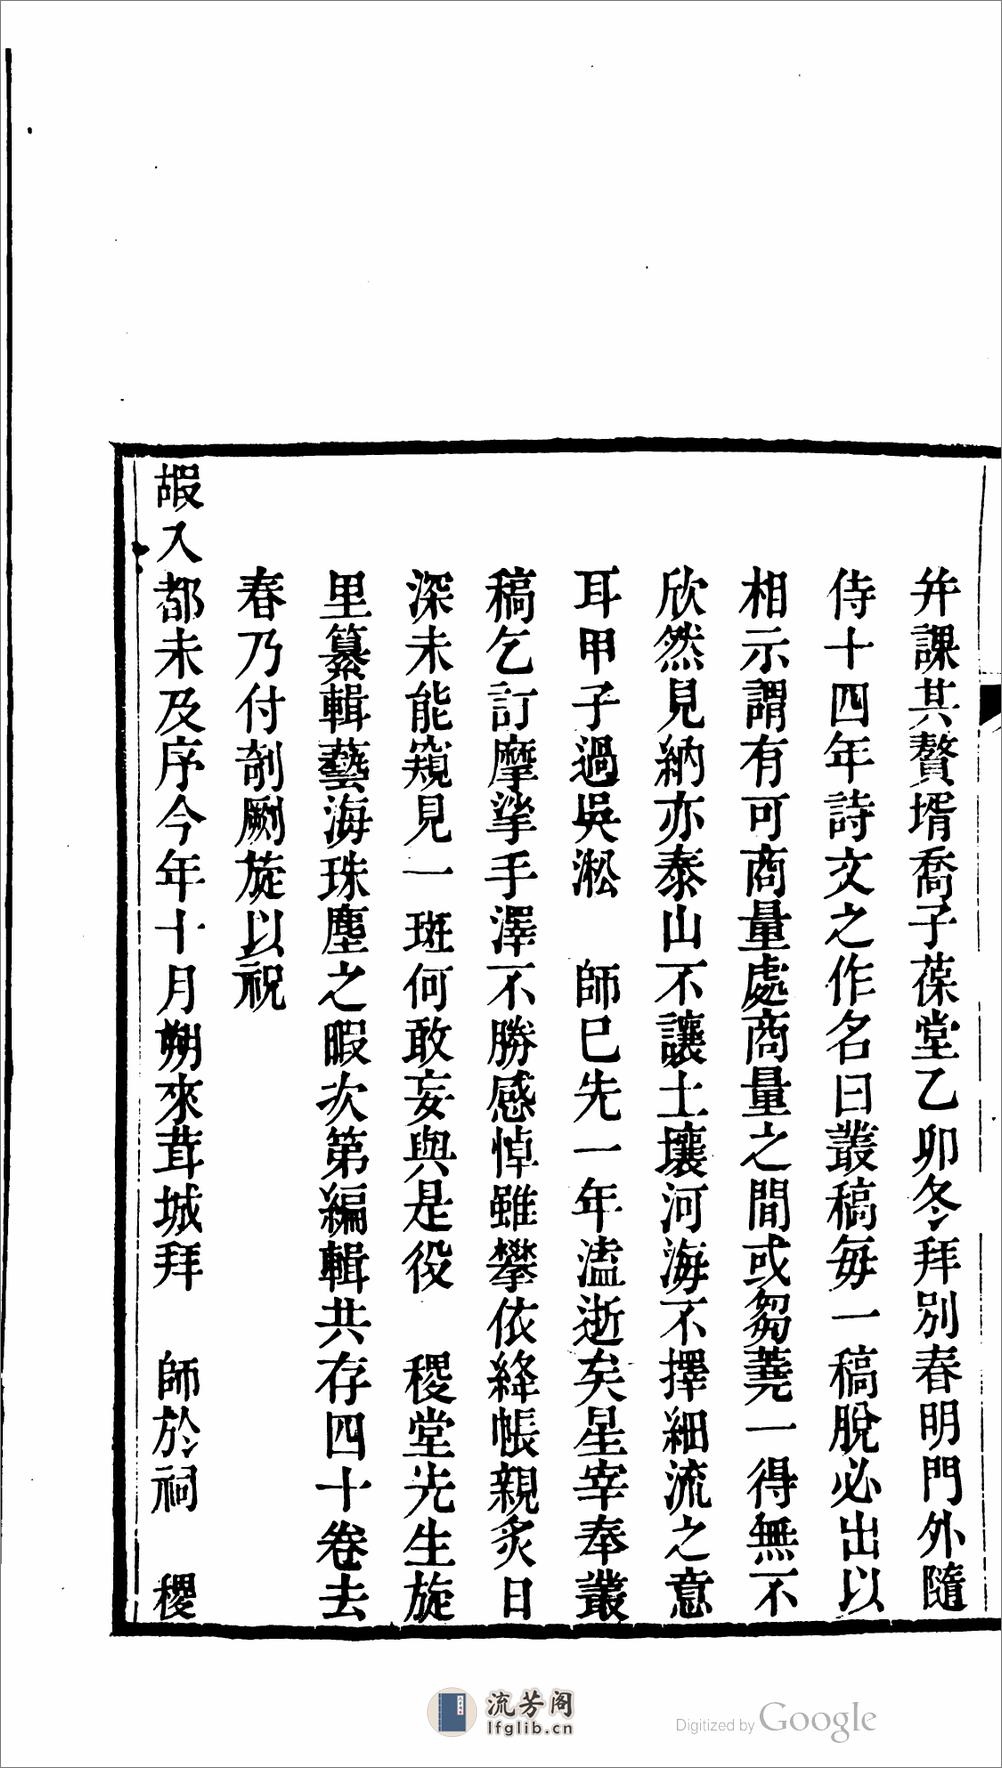 幷課其贅壻喬子葆堂乙卯冬拜別春明門外隨
侍十四年詩文之作名曰叢稿每一稿脫必出以
相示謂有可商量處商量之間或芻蕘一得無不
欣然見納亦泰山不讓土壤河海不擇細流之意
耳甲子過吳淞　師已先一年溘逝矣星宰奉叢
稿乞訂摩挲手澤不勝感悼雖攀依絳帳親炙日
深未能窺見一斑何敢妄與是役　稷堂先生旋
里纂輯藝海珠塵之暇次第編輯共存四十卷去
春乃付剞劂旋以祝
嘏入都未及序今年十月朔來茸城拜　師於祠　稷
流芳阁
lfglib.cn
Digitized by Google